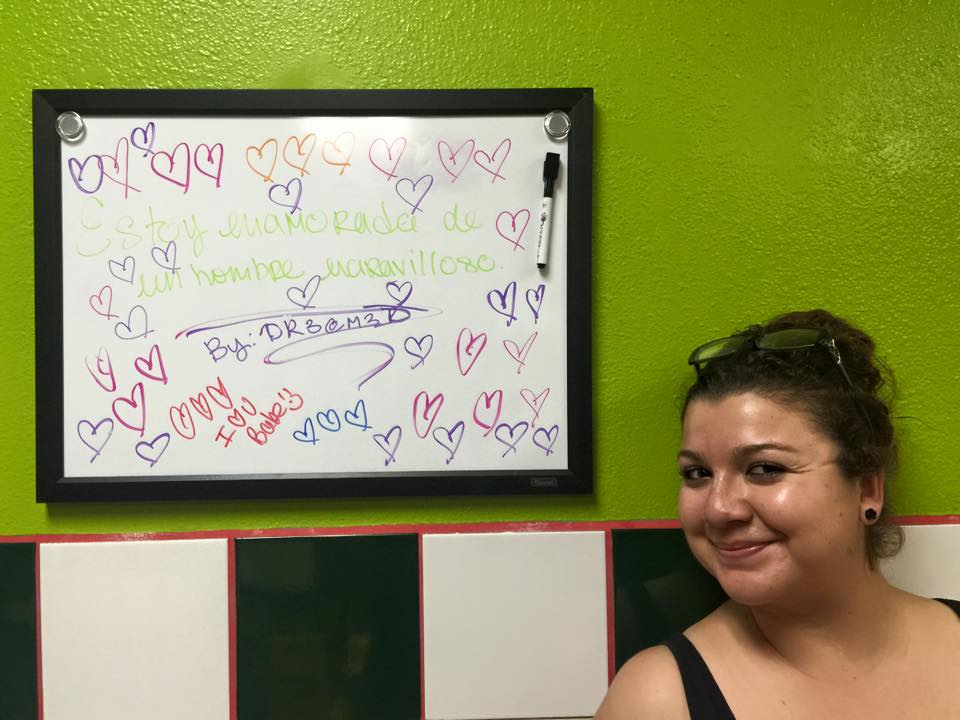 Estoy enamorada de
un hombre maravilloso.
By: DR3@M3D
I U
Babe :)